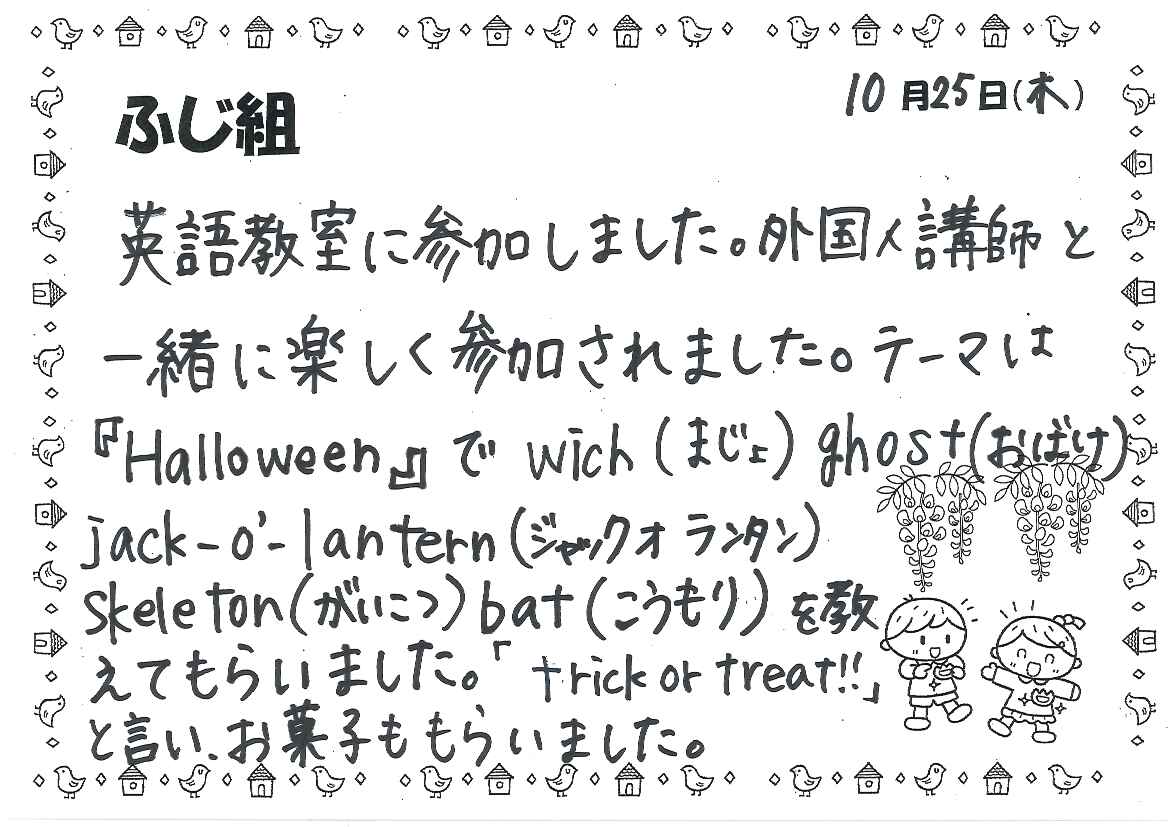 10月25日(木)
ふじ組
英語教室に参加しました。外国人講師と
一緒に楽しく参加されました。テーマは
『Halloween』で wich (まじょ) ghost(おばけ)
jack-o'-lantern(ジャックオランタン)
skeleton(がいこつ) bat(こうもり)を教
えてもらいました。「trick or treat!!」
と言い、お菓子ももらいました。